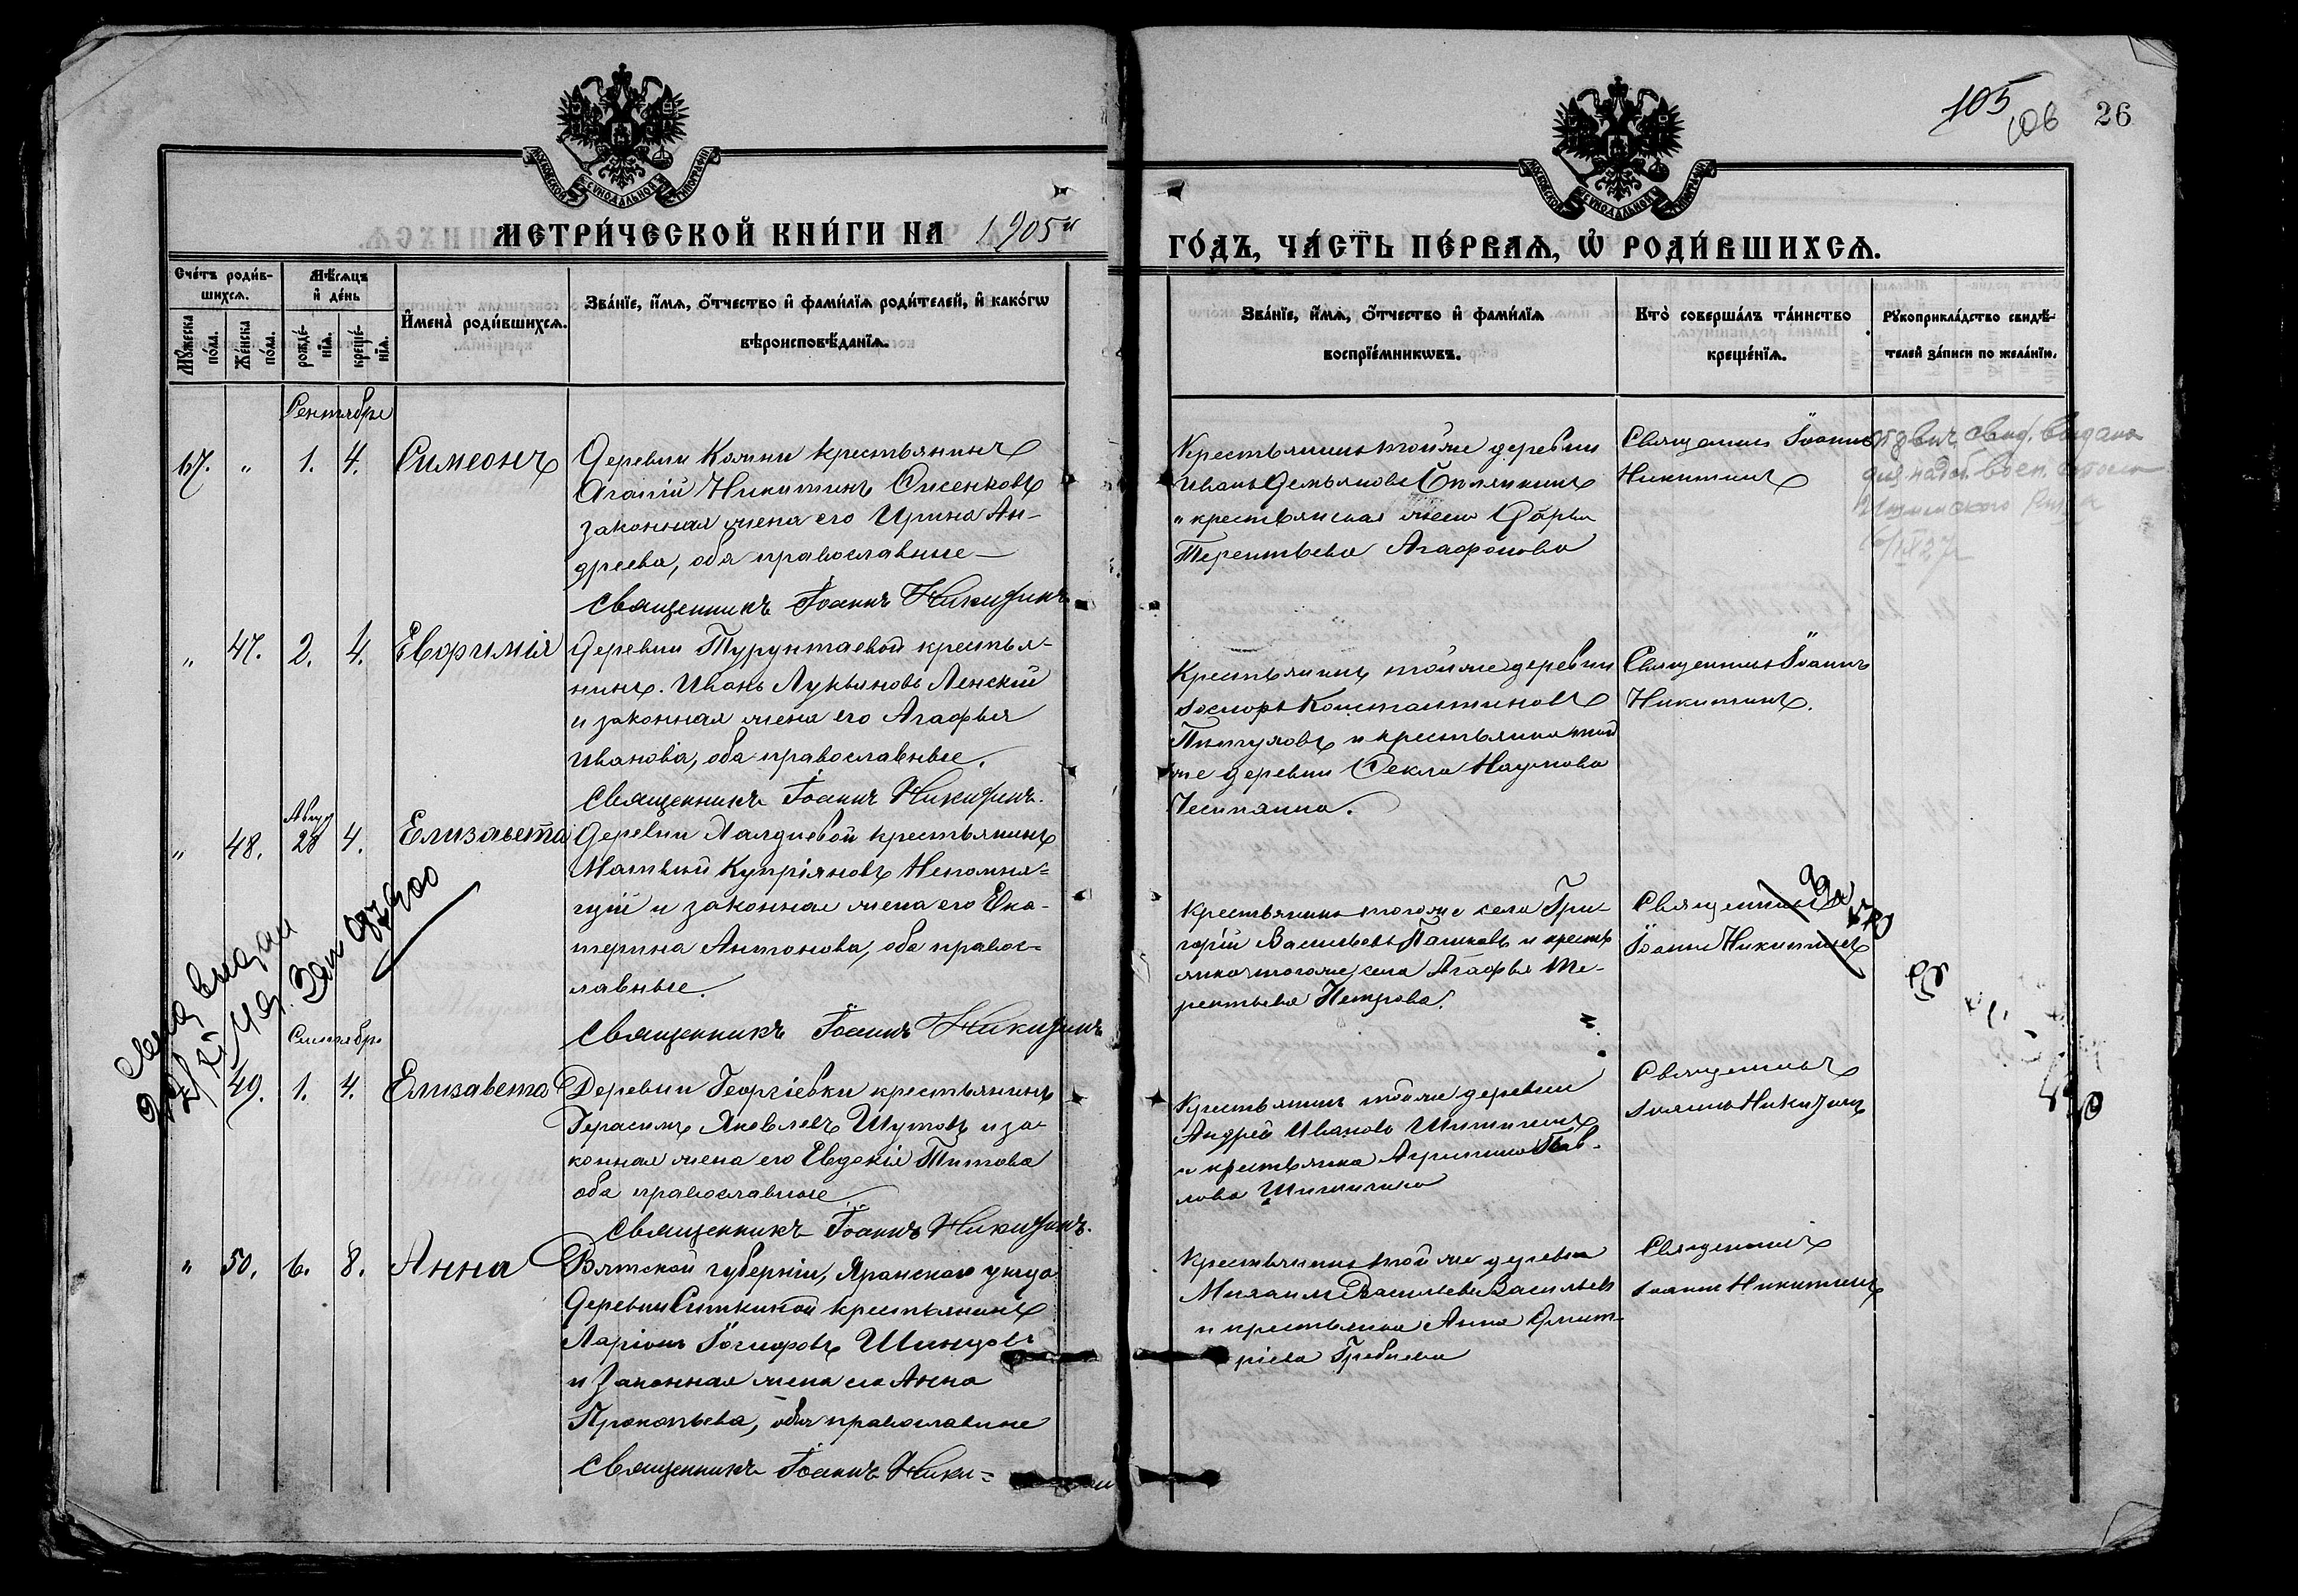 105
106
26
МОСКОВСКОЙ СУНОДАЛЬНОЙ ТИПОГРАФІИ
МОСКОВСКОЙ СУНОДАЛЬНОЙ ТИПОГРАФІИ
МЕТРИ́ЧЕСКОЙ КНИ́ГИ НА 1905й
ГО́ДЪ, ЧА́СТЬ ПЕ́РВАѦ, Ѡ҆ РОДИ́ВШИХСѦ.
Сче́тъ роди́в-
шихсѧ.
Мꙋ́жеска по́ла.
Же́нска по́ла.
Мѣ́сѧцъ
и҆ де́нь
рожде́-
нїѧ.
креще́-
нїѧ.
И҆мена̀ роди́вшихсѧ.
Зва́нїе, и҆́мѧ, ѻ҆́тчество и҆ фами́лїѧ роди́телей, и҆ како́гѡ
вѣроисповѣ́данїѧ.
Зва́нїе, и҆́мѧ, ѻ҆́тчество и҆ фами́лїѧ
воспрїе́мникѡвъ.
Кто̀ соверша́лъ та́инство
креще́нїѧ.
Рꙋкоприкла́дство свидѣ́-
телей за́писи по жела́нїю.
Сентября
67. " 1. 4. Симеонъ
Деревни крестьянинъ
Агапій Никитинъ
законная жена его Ирина Ан-
дреева, оба православные
Священникъ Іоаннъ Никитинъ
Крестьянинъ той же деревни
Иванъ Демьяновъ
и крестьянская жена Дарья
Терентьева Агафонова
Священникъ Іоаннъ
Никитинъ
" 47. 2. 4. Евфимія
Деревни Турунтаевой крестья-
нинъ. Иванъ Лукьяновъ Ленскій
и законная жена его Агафья
Иванова, оба православные.
Священникъ Іоаннъ Никитинъ.
Крестьянинъ той же деревни
Константиновъ
и крестьянка той
же деревни Ѳекла Наумова
Священникъ Іоаннъ
Никитинъ.
Авгус
" 48. 28 4. Елизавета
Деревни крестьянинъ
Матвѣй Купріяновъ Непомня-
щій и законная жена его Ека-
терина Антонова, оба правос-
лавные.
Священникъ Іоаннъ Никитинъ
Крестьянинъ того же села Гри-
горій Васильевъ Пашковъ и кресть
янка того же села Агафья Те-
рентьева Петрова.
Священникъ
Іоаннъ Никитинъ
Сентября
49. 1. 4. Елизавета
Деревни Георгіевки крестьянинъ
Герасимъ Яковлевъ Шутовъ и за-
конная жена его Евдокія Титова
оба православные
Священникъ Іоаннъ Никитинъ.
Крестьянинъ той же деревни
Андрей Ивановъ
и крестьянка Агрипина Пав-
лова
Священникъ
Іоаннъ Никитинъ
" 50. 6. 8. Анна
Вятской губерніи, Яранскаго уѣзда
Деревни Ситкиной крестьянинъ
Ларіонъ
и законная жена его Анна
Прокопьева, оба православные
Священникъ Іоаннъ Ники-
Крестьянинъ той же деревни
Михаилъ Васильевъ Васильевъ
и крестьянка Анна Дмит-
ріева Гребнева
Священникъ
Іоаннъ Никитинъ